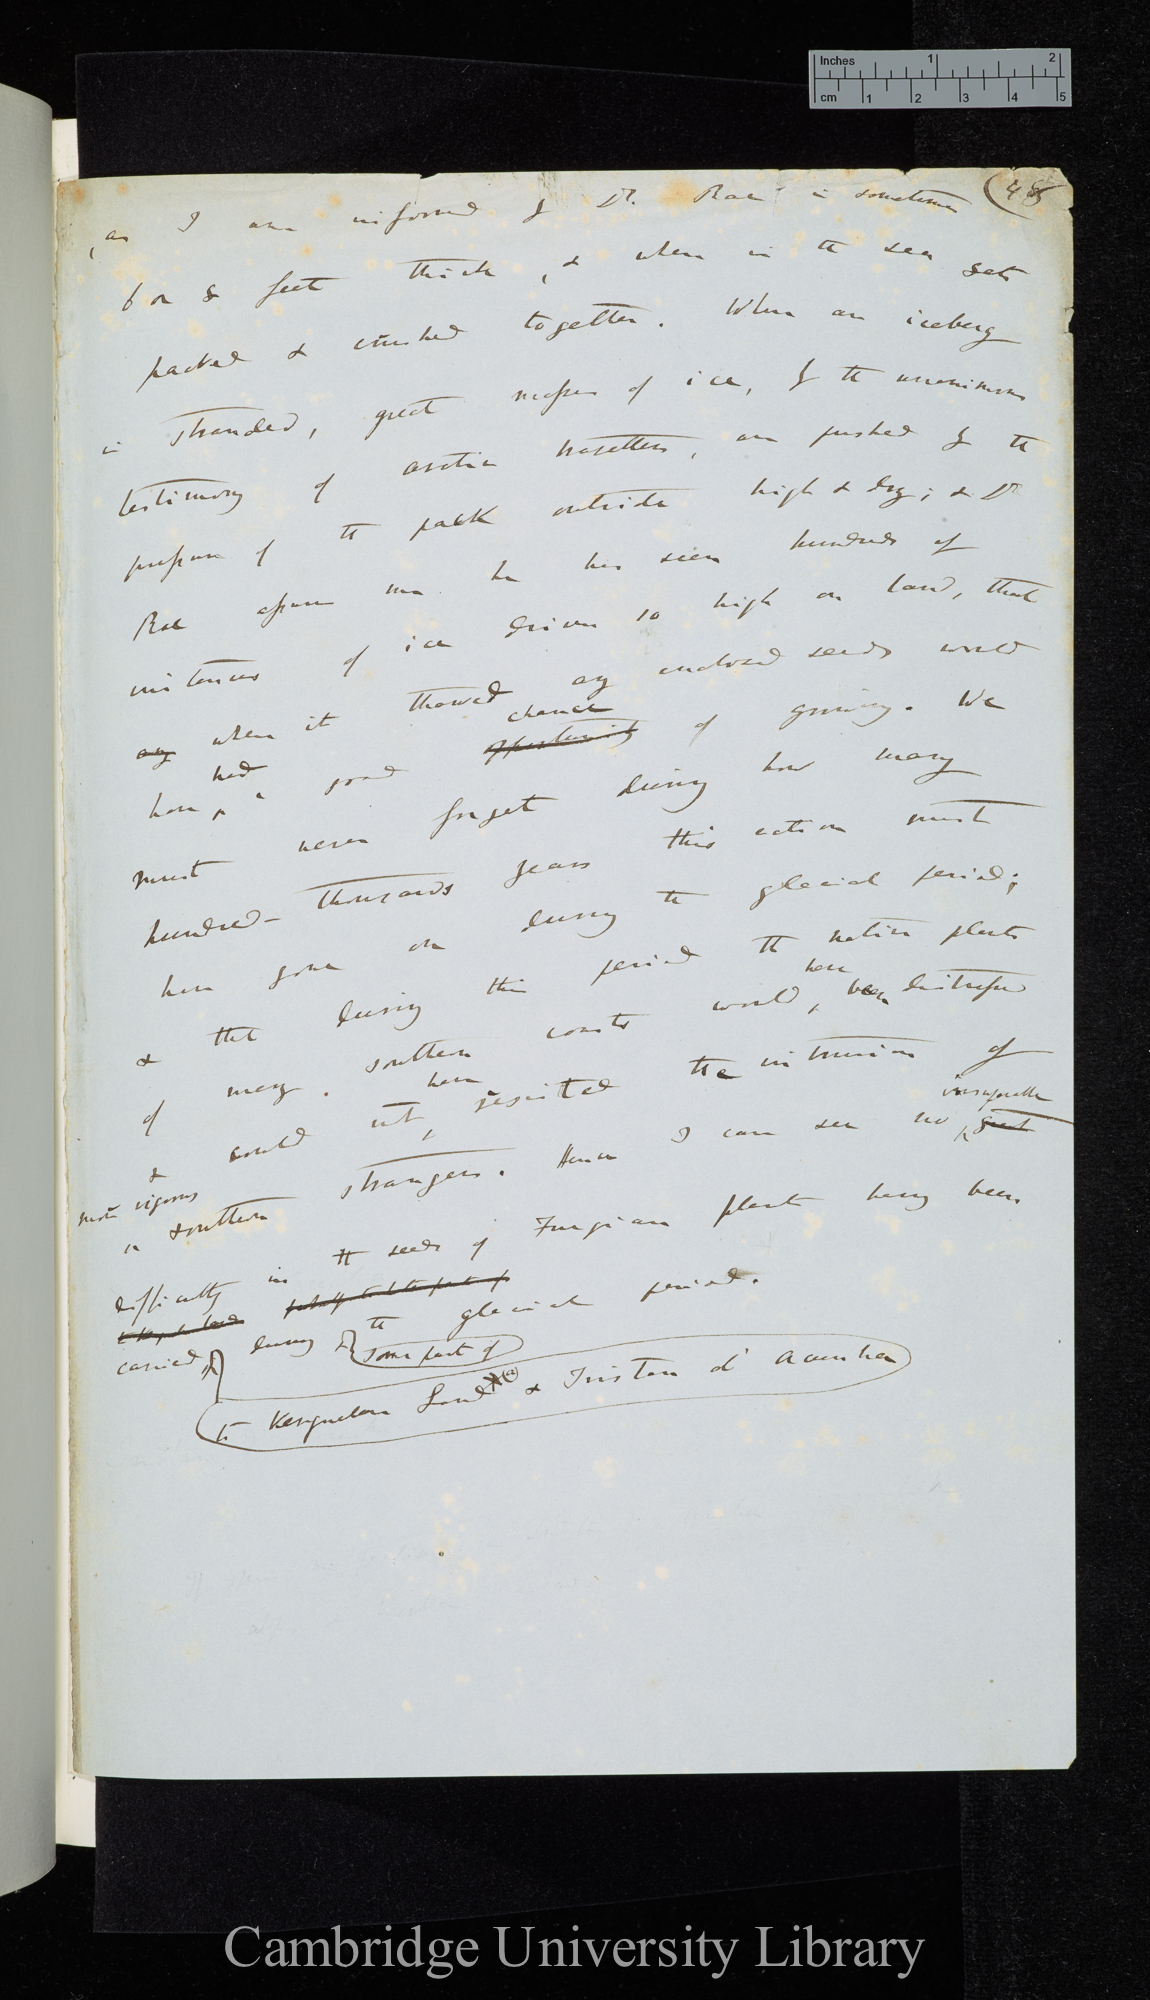 Inches 1 2
cm 1 2 3 4 5
(48
, as I am informed by Dr. Rae is sometimes
6 or 8 feet thick, & when in the sea gets
packed & crushed together. When an iceberg
is stranded, great masses of ice, by the unanimous
testimony of arctic travellers, are pushed by the
pressure of the pack outside high & dry; & Dr
Rae assures me he has seen hundreds of
instances of ice driven so high on land, that
any when it thawed any enclosed seeds would
chance
had
have a good opportunity of growing. We
must never forget during how many
hundred-thousands years this action must
have gone on during the glacial period;
& that during this period the native plants
have
of many southern coasts would, been distressed
have
& could not, resisted the intrusion of
insuperable
more vigorous
southern strangers. Hence I can see no great
difficulty in the seeds of Fuegian plants having been
carried, during the glacial period.
some part of
to Kerguelen Land & Tristan d' Acunha
Cambridge University Library